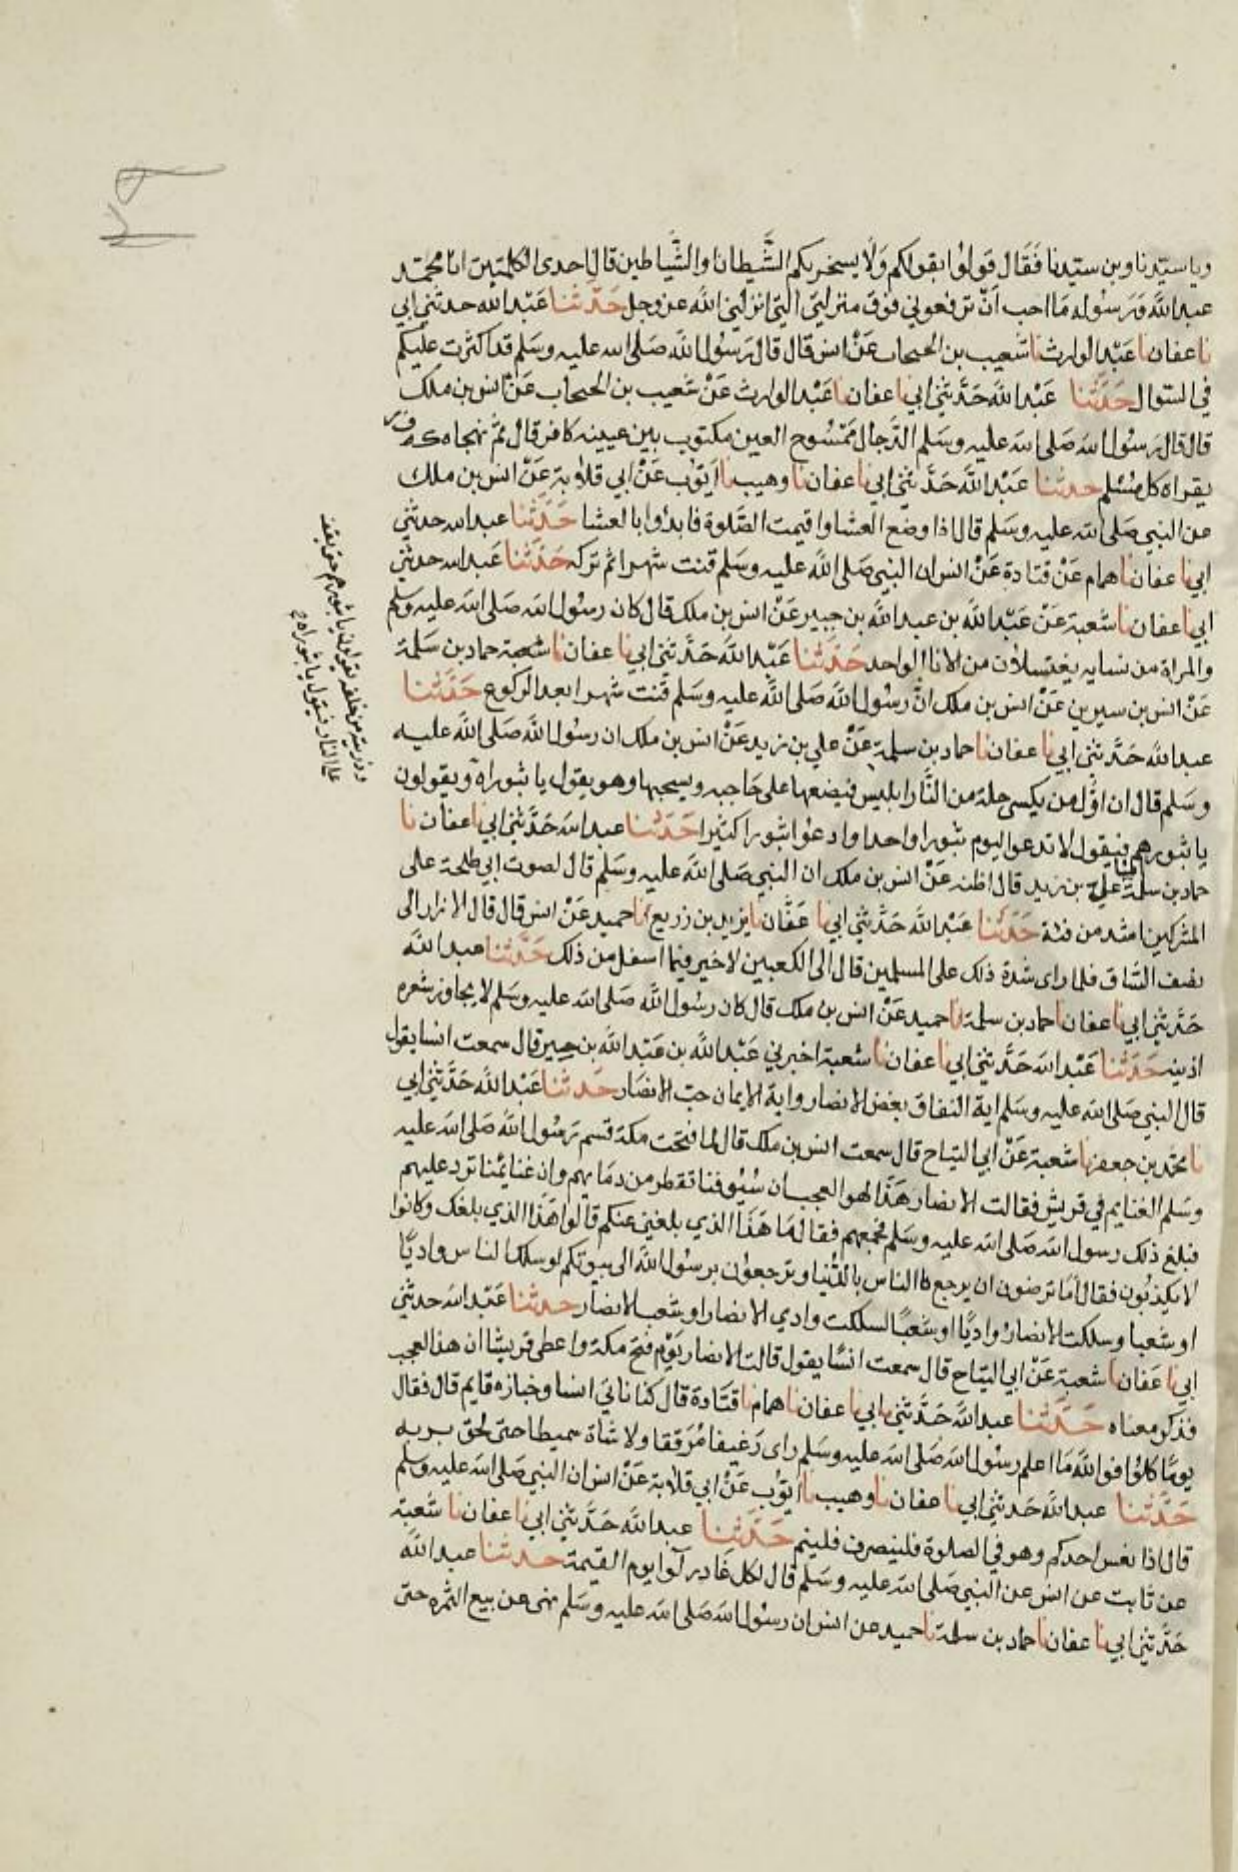 وياسيدنا وبن سيدنا فقال قولوا بقولكم ولا يسخر بكم الشيطان او الشياطين قال احدى الكلمتين انا محمد
عبد الله ورسوله ما احب ان ترفعوني فوق منزلتي التي انزلني الله عز وجل حدثنا عبد الله حدثني ابي
نا عفان نا عبد الوارث نا شعيب بن الحبحاب عن انس قال قال رسول الله صلى الله عليه وسلم قد اكثرت عليكم
في السواك حدثنا عبد الله حدثني ابي نا عفان نا عبد الوارث عن شعيب بن الحبحاب عن انس بن ملك
قال قال رسول الله صلى الله عليه وسلم الدجال ممسوح العين مكتوب بين عينيه كافر قال ثم تهجاه ك ف ر
يقراه كل مسلم حدثنا عبد الله حدثني ابي نا عفان نا وهيب نا ايوب عن ابي قلابة عن انس بن ملك
عن النبي صلى الله عليه وسلم قال اذا وضع العشا واقيمت الصلوة فابدؤا بالعشا حدثنا عبد الله حدثني
ابي نا عفان نا همام عن قتادة عن انس ان النبي صلى الله عليه وسلم قنت شهرا ثم تركه حدثنا عبد الله حدثني
ابي نا عفان نا شعبة عن عبد الله بن عبد الله بن جبير عن انس بن ملك قال كان رسول الله صلى الله عليه وسلم
والمراة من نسايه يغتسلان من الانا الواحد حدثنا عبد الله حدثني ابي نا عفان نا شعبة حماد بن سلمة
عن انس بن سيرين عن انس بن ملك ان رسول الله صلى الله عليه وسلم قنت شهرا بعد الركوع حدثنا
عبد الله حدثني ابي نا عفان نا حماد بن سلمة عن علي بن زيد عن انس بن ملك ان رسول الله صلى الله عليه
وسلم قال ان اول من يكسى حلة من النار ابليس فيضعها على حاجبه ويسحبها وهو يقول يا ثبوراه ويقولون
يا ثبورهم فيقول لا تدعوا اليوم ثبورا واحدا وادعوا ثبورا كثيرا حدثنا عبد الله حدثني ابي نا عفان نا
حماد بن سلمة علي بن زيد قال اظنه عن انس بن ملك ان النبي صلى الله عليه وسلم قال لصوت ابي طلحة على
المشركين اشد من فئة حدثنا عبد الله حدثني ابي نا عفان نا يزيد بن زريع نا حميد عن انس قال قال الازار الى
نصف الساق فلما راى شدة ذلك على المسلمين قال الى الكعبين لا خير فيما اسفل من ذلك حدثنا عبد الله
حدثني ابي نا عفان نا حماد بن سلمة نا حميد عن انس بن ملك قال كان رسول الله صلى الله عليه وسلم لا يجاوز شعره
اذنيه حدثنا عبد الله حدثني ابي نا عفان نا شعبة اخبرني عبد الله بن عبد الله بن جبير قال سمعت انسا يقول
قال النبي صلى الله عليه وسلم اية النفاق بغض الانصار واية الايمان حب الانصار حدثنا عبد الله حدثني ابي
نا محمد بن جعفر نا شعبة عن ابي التياح قال سمعت انس بن ملك قال لما فتحت مكة قسم رسول الله صلى الله عليه
وسلم الغنايم في قريش فقالت الانصار هذا لهو العجب ان سيوفنا تقطر من دمايهم وان غنايمنا ترد عليهم
فبلغ ذلك رسول الله صلى الله عليه وسلم فجمعهم فقال ما هذا الذي بلغني عنكم قالوا هذا الذي بلغك وكانوا
لا يكذبون فقال اما ترضون ان يرجع الناس بالدنيا وترجعون برسول الله الى بيوتكم لو سلك الناس واديا
او شعبا وسلكت الانصار واديا او شعبا لسلكت وادي الانصار او شعب الانصار حدثنا عبد الله حدثني
ابي نا عفان نا شعبة عن ابي التياح قال سمعت انسا يقول قالت الانصار يوم فتح مكة واعطى قريشا ان هذا العجب
فذكر معناه حدثنا عبد الله حدثني ابي نا عفان نا همام نا قتادة قال كنا ناتي انسا وخبازه قايم قال فقال
يوما كلوا فوالله ما اعلم رسول الله صلى الله عليه وسلم راى رغيفا مرققا ولا شاة سميطا حتى لحق بربه
حدثنا عبد الله حدثني ابي نا عفان نا وهيب نا ايوب عن ابي قلابة عن انس ان النبي صلى الله عليه وسلم
قال اذا نعس احدكم وهو في الصلوة فلينصرف فلينم حدثنا عبد الله حدثني ابي نا عفان نا شعبة
عن ثابت عن انس عن النبي صلى الله عليه وسلم قال لكل غادر لوا يوم القيمة حدثنا عبد الله
حدثني ابي نا عفان نا حماد بن سلمة نا حميد عن انس ان رسول الله صلى الله عليه وسلم نهى عن بيع الثمره حتى
وذريته من خلفه يقولون يا ثبورهم حتى يقف
على النار فيقول يا ثبوراه